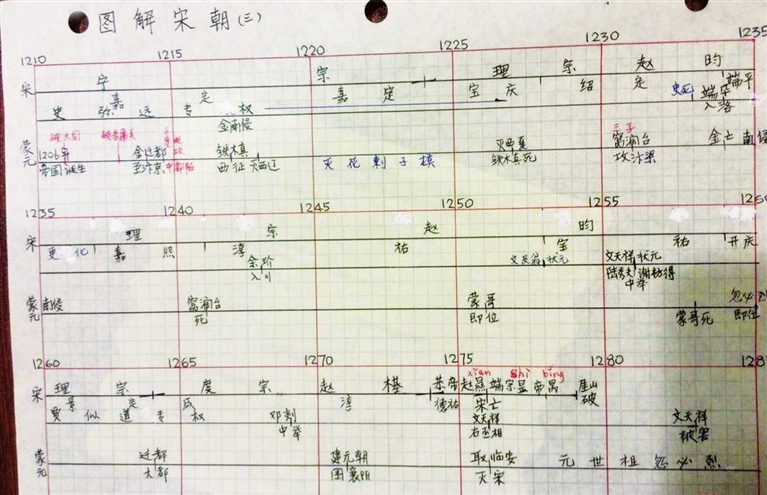 图解宋朝(三)
1210 1215 1220 1225 1230 1235
宋 宁 宗 理 宗 赵 昀
嘉 定 嘉 定 宝庆 绍 定 端平
史弥远专权 史死 端平入洛
金南侵
蒙元 1206年帝国诞生 金迁都至汴京 中都陷 铁木真西征灭西辽 灭花剌子模 灭西夏 铁木真死 三子窝阔台攻汴梁 金亡 南侵
1235 1240 1245 1250 1255
宋 理 宗 赵 昀
更化 嘉 熙 淳 祐 宝 祐 开庆
余玠入川 状元 文天祥状元
陆秀夫 谢枋得中举
蒙元 南侵 窝阔台死 蒙哥即位 蒙哥死 忽必烈即位
1260 1265 1270 1275 1280
xian shi bing
宋 理 宗 度 宗 赵 禥 恭帝赵㬎 端宗昰 帝昺 崖山破
景 定 咸 淳 德祐 宋亡
贾似道专权 邓剡中举 文天祥右丞相 文天祥被害
蒙元 迁都大都 建元朝 围襄阳 取临安灭宋 元世祖忽必烈